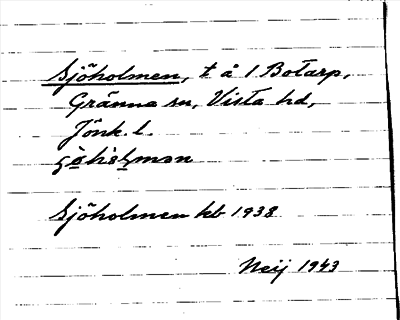 Sjöholmen, t å 1 Botarp,
Gränna sn, Vista hd,
Jönk. l.
Sjöholmen hb 1938
Neij 1943